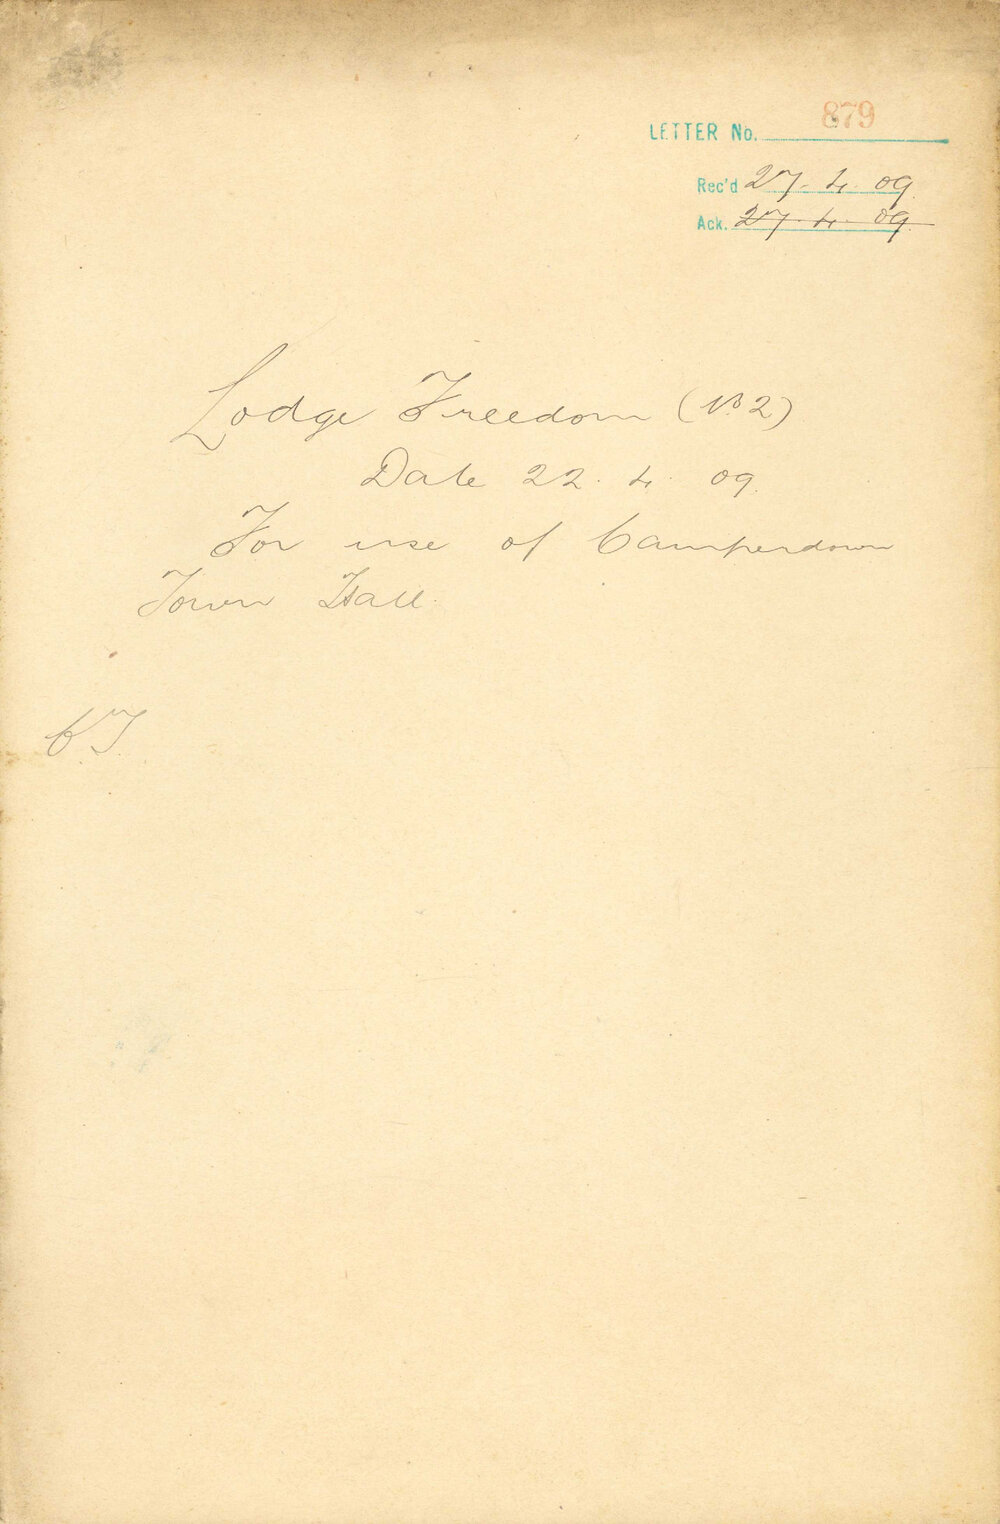 LETTER No. 879
Rec'd 27. 4. 09
Ack. 27. 4. 09
Lodge Freedom (182)
Date 22. 4. 09.
For use of Camperdown
Town Hall.